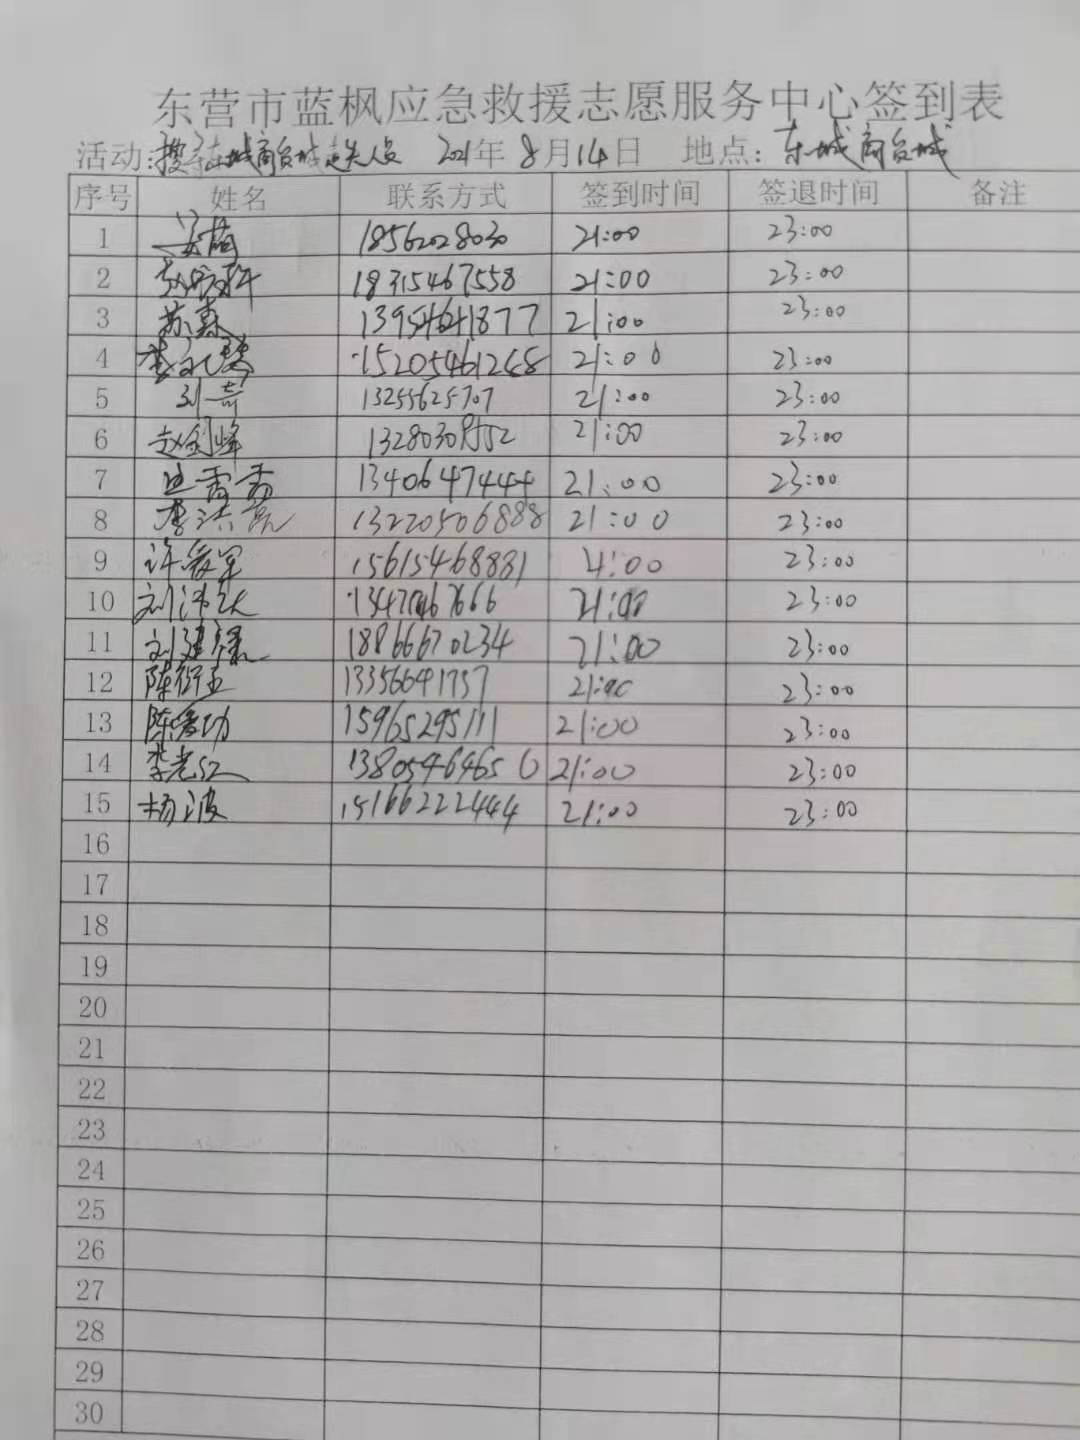 东营市蓝枫应急救援志愿服务中心签到表
活动:搜寻东城商贸城走失人员 2021年8月14日 地点:东城商贸城
序号 姓名 联系方式 签到时间 签退时间 备注
1 18562028030 21:00 23:00
2 18315467558 21:00 23:00
3 苏森 13954641877 21:00 23:00
4 15205461268 21:00 23:00
5 刘奇 13255625707 21:00 23:00
6 赵剑峰 13280309552 21:00 23:00
7 13406474444 21:00 23:00
8 李洪亮 13220506888 21:00 23:00
9 许爱军 15615468881 21:00 23:00
10 21:00 23:00
11 刘建禄 18866670234 21:00 23:00
12 陈衍玉 13356641757 21:00 23:00
13 陈爱功 15965295111 21:00 23:00
14 李光红 13805464650 21:00 23:00
15 杨波 15166222444 21:00 23:00
16
17
18
19
20
21
22
23
24
25
26
27
28
29
30